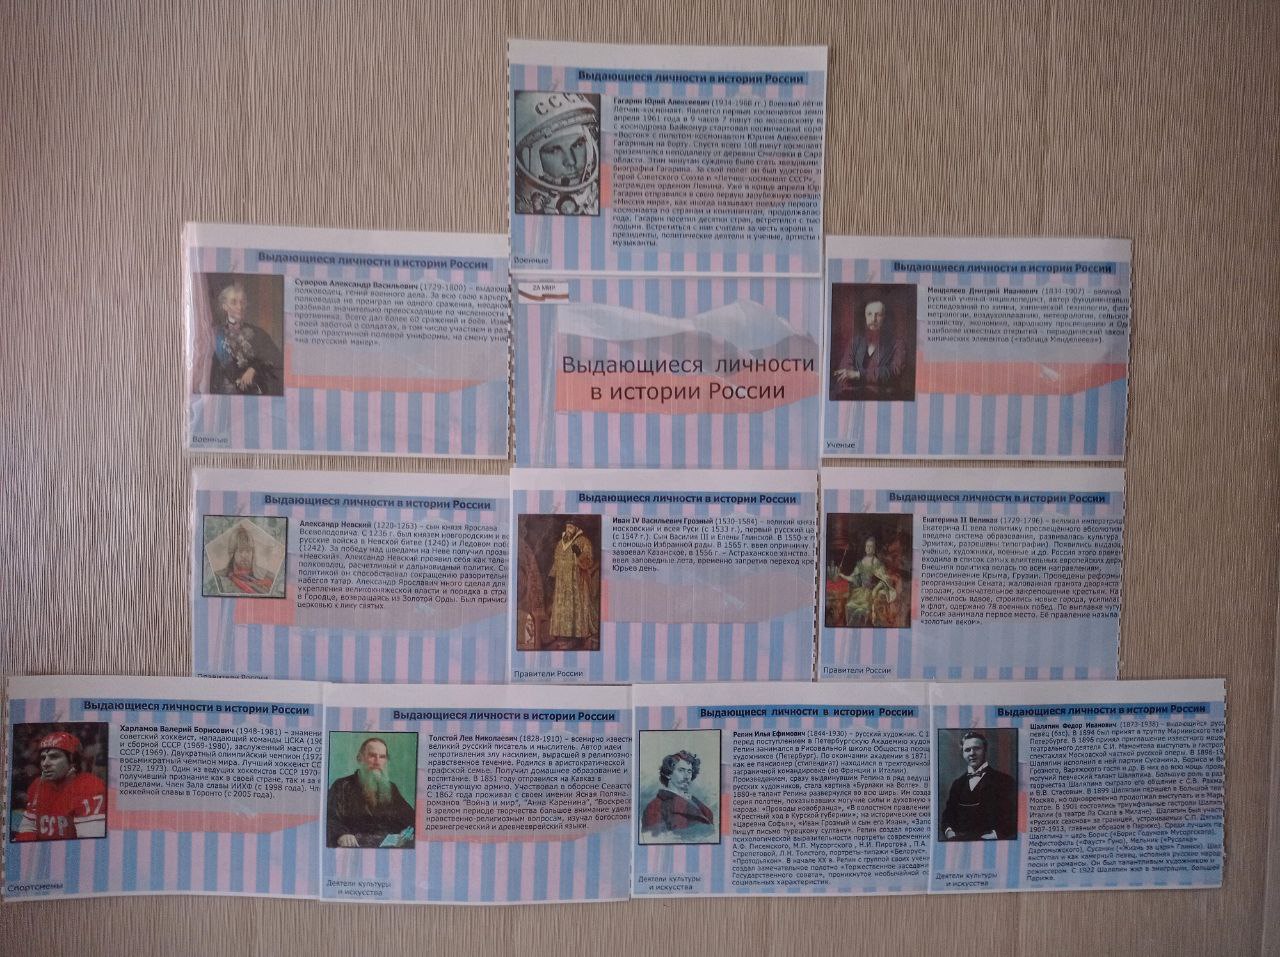 Выдающиеся личности в истории России
Гагарин Юрий Алексеевич (1934-1968 гг.) Военный лётчик
Лётчик-космонавт. Является первым космонавтом
апреля 1961 года в 9 часов 7 минут по московскому
с космодрома Байконур стартовал космический
«Восток» с пилотом-космонавтом Юрием Алексеевичем
Гагариным на борту. Спустя всего 108 минут космонавт
приземлился неподалеку от деревни Смеловки в
области. Этим минутам суждено было стать звездными
биографии Гагарина. За свой полет он был удостоен
Герой Советского Союза и «Летчик-космонавт СССР»,
награжден орденом Ленина. Уже в конце апреля
Гагарин отправился в свою первую зарубежную
«Миссия мира», как иногда называют поездку первого
космонавта по странам и континентам,
года. Гагарин посетил десятки стран, встретился с
людьми. Встретиться с ним считали за честь короли и
президенты, политические деятели и ученые, артисты
музыканты.
Военные
Выдающиеся личности в истории России
Суворов Александр Васильевич (1729-1800) –
полководец, гений военного дела. За всю свою карьеру
полководца не проиграл ни одного сражения,
разбивал значительно превосходящие по численности
противника. Всего дал более 60 сражений и боёв.
своей заботой о солдатах, в том числе участием в
новой практичной полевой униформы, на смену
«на прусский манер».
Военные
2А МИР
Выдающиеся личности
в истории России
Выдающиеся личности в истории России
Менделеев Дмитрий Иванович (1834-1907) – великий
русский ученый-энциклопедист, автор фундаментальных
по химии, химической технологии,
метрологии, воздухоплаванию, метеорологии,
хозяйству, экономике, народному просвещению и
наиболее известных открытий – периодический закон
химических элементов («таблица Менделеева»).
Ученые
Выдающиеся личности в истории России
Александр Невский (1220-1263) – сын князя Ярослава
Всеволодовича. С 1236 г. был князем новгородским и
русские войска в Невской битве (1240) и Ледовом
(1242). За победу над шведами на Неве получил
«Невский». Александр Невский проявил себя как
полководец, расчетливый и дальновидный политик.
политикой он способствовал сокращению
набегов татар. Александр Ярославич много сделал для
укрепления великокняжеской власти и порядка в
в Городце, возвращаясь из Золотой Орды. Был
церковью к лику святых.
Правители России
Выдающиеся личности в истории России
Иван IV Васильевич Грозный (1530-1584) – великий
московский и всея Руси (с 1533 г.), первый русский
(с 1547 г.). Сын Василия III и Елены Глинской. В 1550-х
с помощью Избранной рады. В 1565 г. ввел опричнину.
завоевал Казанское, в 1556 г. – Астраханское ханства.
ввел заповедные лета, временно запретив переход
Юрьев день.
Правители России
Выдающиеся личности в истории России
Екатерина II Великая (1729-1796) – великая
Екатерина II вела политику просвещённого
введена система образования, развивалась культура
Эрмитаж, разрешены типографии). Появились
учёные, художники, военные и др. Россия этого
входила в список самых влиятельных европейских
Внешняя политика велась по всем направлениям,
присоединение Крыма, Грузии. Проведены
реорганизация Сената, жалованная грамота
городам, окончательное закрепощение крестьян.
увеличилось вдвое, строились новые города,
и флот, одержано 78 военных побед. По выплавке
Россия занимала первое место. Её правление
«золотым веком».
Правители России
Выдающиеся личности в истории России
Харламов Валерий Борисович (1948-1981) –
советский хоккеист, нападающий команды ЦСКА
и сборной СССР (1969-1980), заслуженный мастер
СССР (1969). Двукратный олимпийский чемпион (1972,
восьмикратный чемпион мира. Лучший хоккеист
(1972, 1973). Один из ведущих хоккеистов СССР 1970-
получивший признание как в своей стране, так и за
пределами. Член Зала славы ИИХФ (с 1998 года).
хоккейной славы в Торонто (с 2005 года).
СССР
17
Спортсмены
Выдающиеся личности в истории России
Толстой Лев Николаевич (1828-1910) – всемирно
великий русский писатель и мыслитель. Автор идеи
непротивления злу насилием, высшей в религиозно-
нравственное течение. Родился в аристократической
графской семье. Получил домашнее образование и
воспитание. В 1851 году отправился на Кавказ в
действующую армию. Участвовал в обороне
С 1862 года проживал в своем имении Ясная Поляна.
романов "Война и мир", "Анна Каренина",
В зрелом периоде творчества большое внимание
нравственно-религиозным вопросам, изучал
древнегреческий и древнееврейский языки.
Деятели культуры
и искусства
Выдающиеся личности в истории России
Репин Илья Ефимович (1844-1930) – русский художник. С
перед поступлением в Петербургскую Академию
Репин занимался в Рисовальной школе Общества
художников (Петербург). По окончании академии в 1871
как ее пенсионер (стипендиат) находился в
заграничной командировке (во Франции и Италии)
Произведением, сразу выдвинувшим Репина в ряд
русских художников, стала картина «Бурлаки на Волге». В
1880-е талант Репина развернулся во всю ширь. Им
серия полотен, показывавших могучие силы и духовную
народа: «Проводы новобранца»,
«Крестный ход в Курской губернии»; на исторические
«Царевна Софья», «Иван Грозный и сын его Иван»,
пишут письмо турецкому султану». Репин создал яркие
психологической выразительности портреты
А.Ф. Писемского, М.П. Мусоргского, Н.И. Пирогова, П.А.
Стрепетовой, Л.Н. Толстого, портреты-типажи
«Протодьякон». В начале XX в. Репин с группой своих
создал замечательное полотно «Торжественное заседание
Государственного совета», проникнутое необычайной
социальных характеристик.
Деятели культуры
и искусства
Выдающиеся личности в истории России
Шаляпин Федор Иванович (1873-1938) – выдающийся
певец (бас). В 1894 был принят в труппу Мариинского
Петербурге. В 1896 принял приглашение известного
театрального деятеля С.И. Мамонтова выступать в
спектаклях Московской частной русской оперы. В 1896-
Шаляпин исполнил в ней партии Сусанина, Бориса
Грозного, Варяжского гостя и др. В них во всю мощь
могучий певческий талант Шаляпина. Большую роль в
творчества Шаляпина сыграло его общение с С.В.
и В.В. Стасовым. В 1899 Шаляпин перешел в Большой
Москве, но одновременно продолжал выступать и в
театре. В 1901 состоялись триумфальные гастроли
Италии (в театре Ла Скала в Милане). Шаляпин был
«Русских сезонов» за границей, устраиваемых С.П.
1907-1913, главным образом в Париже). Среди лучших
Шаляпина – царь Борис («Борис Годунов» Мусоргского),
Мефистофель («Фауст» Гуно), Мельник («Русалка»
Даргомыжского), Сусанин («Жизнь за царя» Глинки).
выступал и как камерный певец, исполняя русские
песни и романсы. Он был талантливым художником и
режиссером. С 1922 Шаляпин жил в эмиграции,
Парижа.
Деятели культуры
и искусства